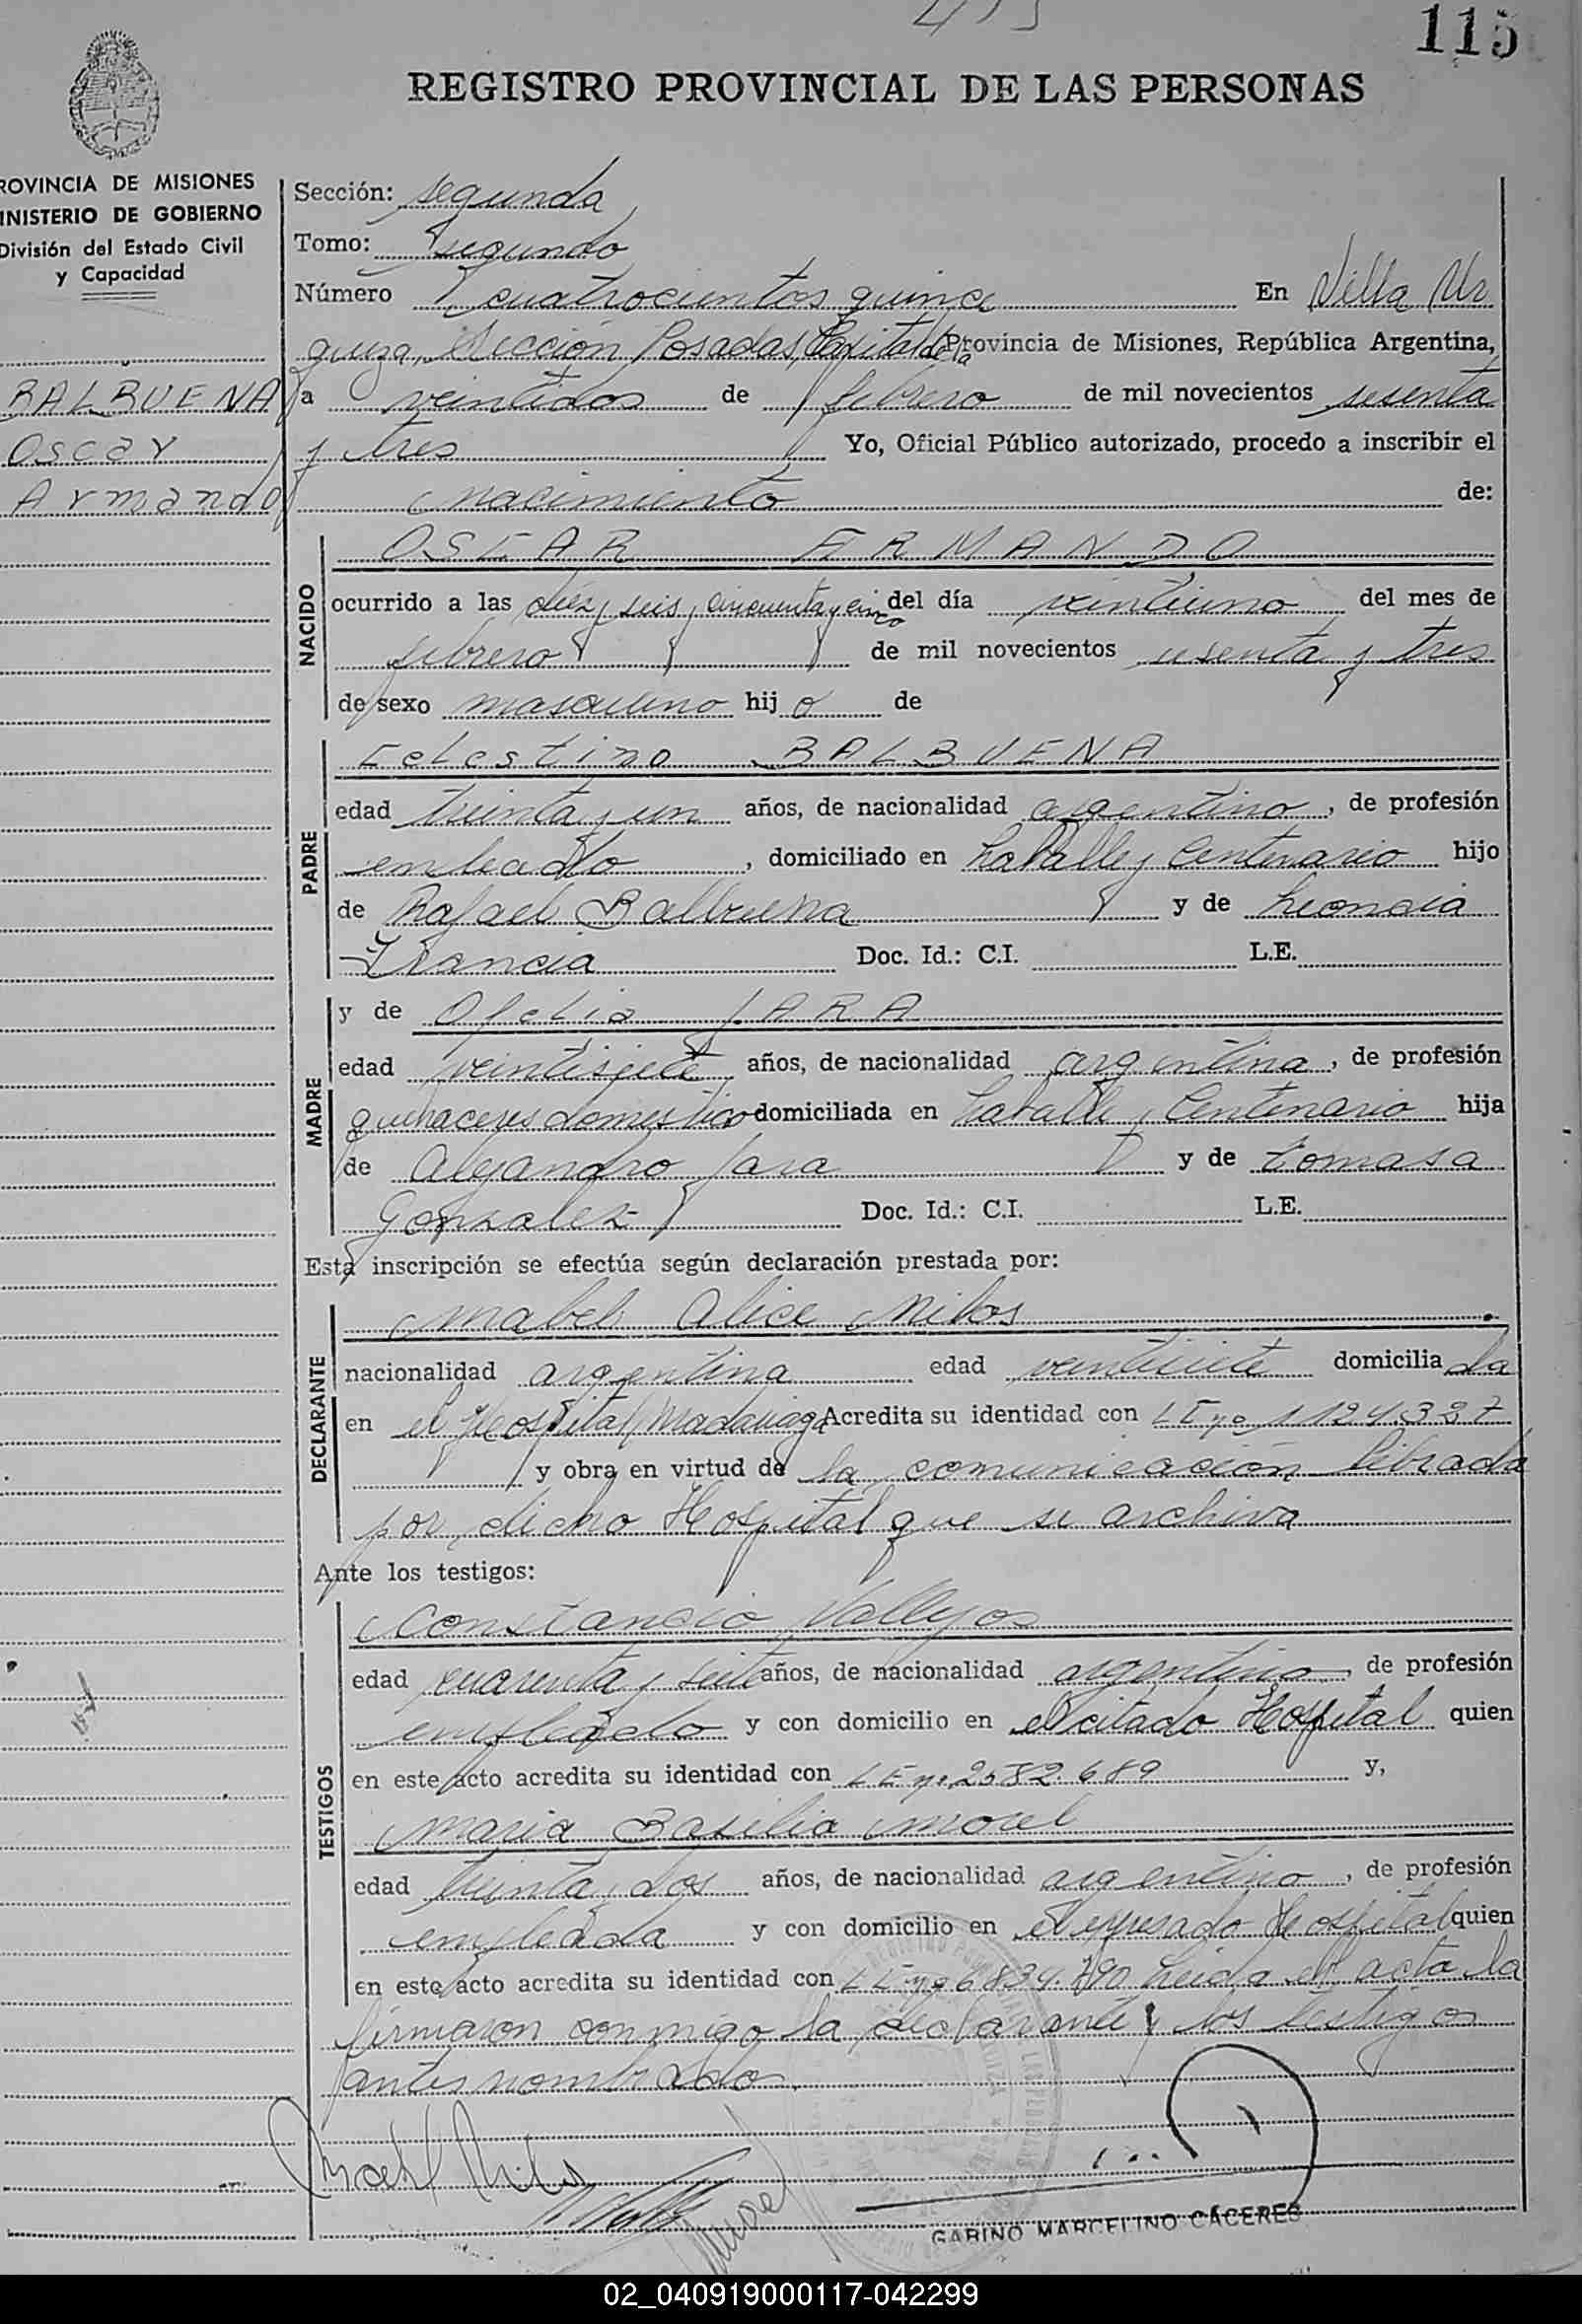 115
REGISTRO PROVINCIAL DE LAS PERSONAS
ROVINCIA DE MISIONES
INISTERIO DE GOBIERNO
División del Estado Civil
y Capacidad
BALBUENA
Oscar
Armando
Sección: segunda
Tomo: segundo
Número cuatrocientos quince En Villa Ur
quiza, Sección Posadas, Capital de la Provincia de Misiones, República Argentina,
a veintidos de febrero de mil novecientos sesenta
y tres Yo, Oficial Público autorizado, procedo a inscribir el
nacimiento de:
OSCAR ARMANDO
NACIDO
ocurrido a las diez y seis y cincuenta y cinco del día veintiuno del mes de
febrero de mil novecientos sesenta y tres
de sexo masculino hijo de
PADRE
Celestino BALBUENA
edad treinta y un años, de nacionalidad argentino, de profesión
empleado, domiciliado en Lavalle y Centenario hijo
de Rafael Balbuena y de Leoncia
Francia Doc. Id.: C.I. L.E.
MADRE
y de Ofelia JARA
edad veintisiete años, de nacionalidad argentina, de profesión
quehaceres domestico domiciliada en Lavalle y Centenario hija
de Alejandro Jara y de Tomasa
Gonzalez Doc. Id.: C.I. L.E.
Esta inscripción se efectúa según declaración prestada por:
DECLARANTE
Mabel Alice Milos
nacionalidad argentina edad veintisiete domiciliada
en el Hospital Madariaga Acredita su identidad con LE nº 1124.327
y obra en virtud de la comunicación librada
por dicho Hospital que se archiva
Ante los testigos:
TESTIGOS
Constancio Vallejos
edad cuarenta y siete años, de nacionalidad argentino de profesión
empleado y con domicilio en el citado Hospital quien
en este acto acredita su identidad con LE nº 2582.689 y,
Maria Basilia Morel
edad treinta y dos años, de nacionalidad argentina, de profesión
empleada y con domicilio en el expresado Hospital quien
en este acto acredita su identidad con LE nº 6834.790 Leida el acta la
firmaron conmigo la declarante y los testigos
antes nombrado.
Mabel Milos
Morel
GABINO MARCELINO CACERES
02_040919000117-042299